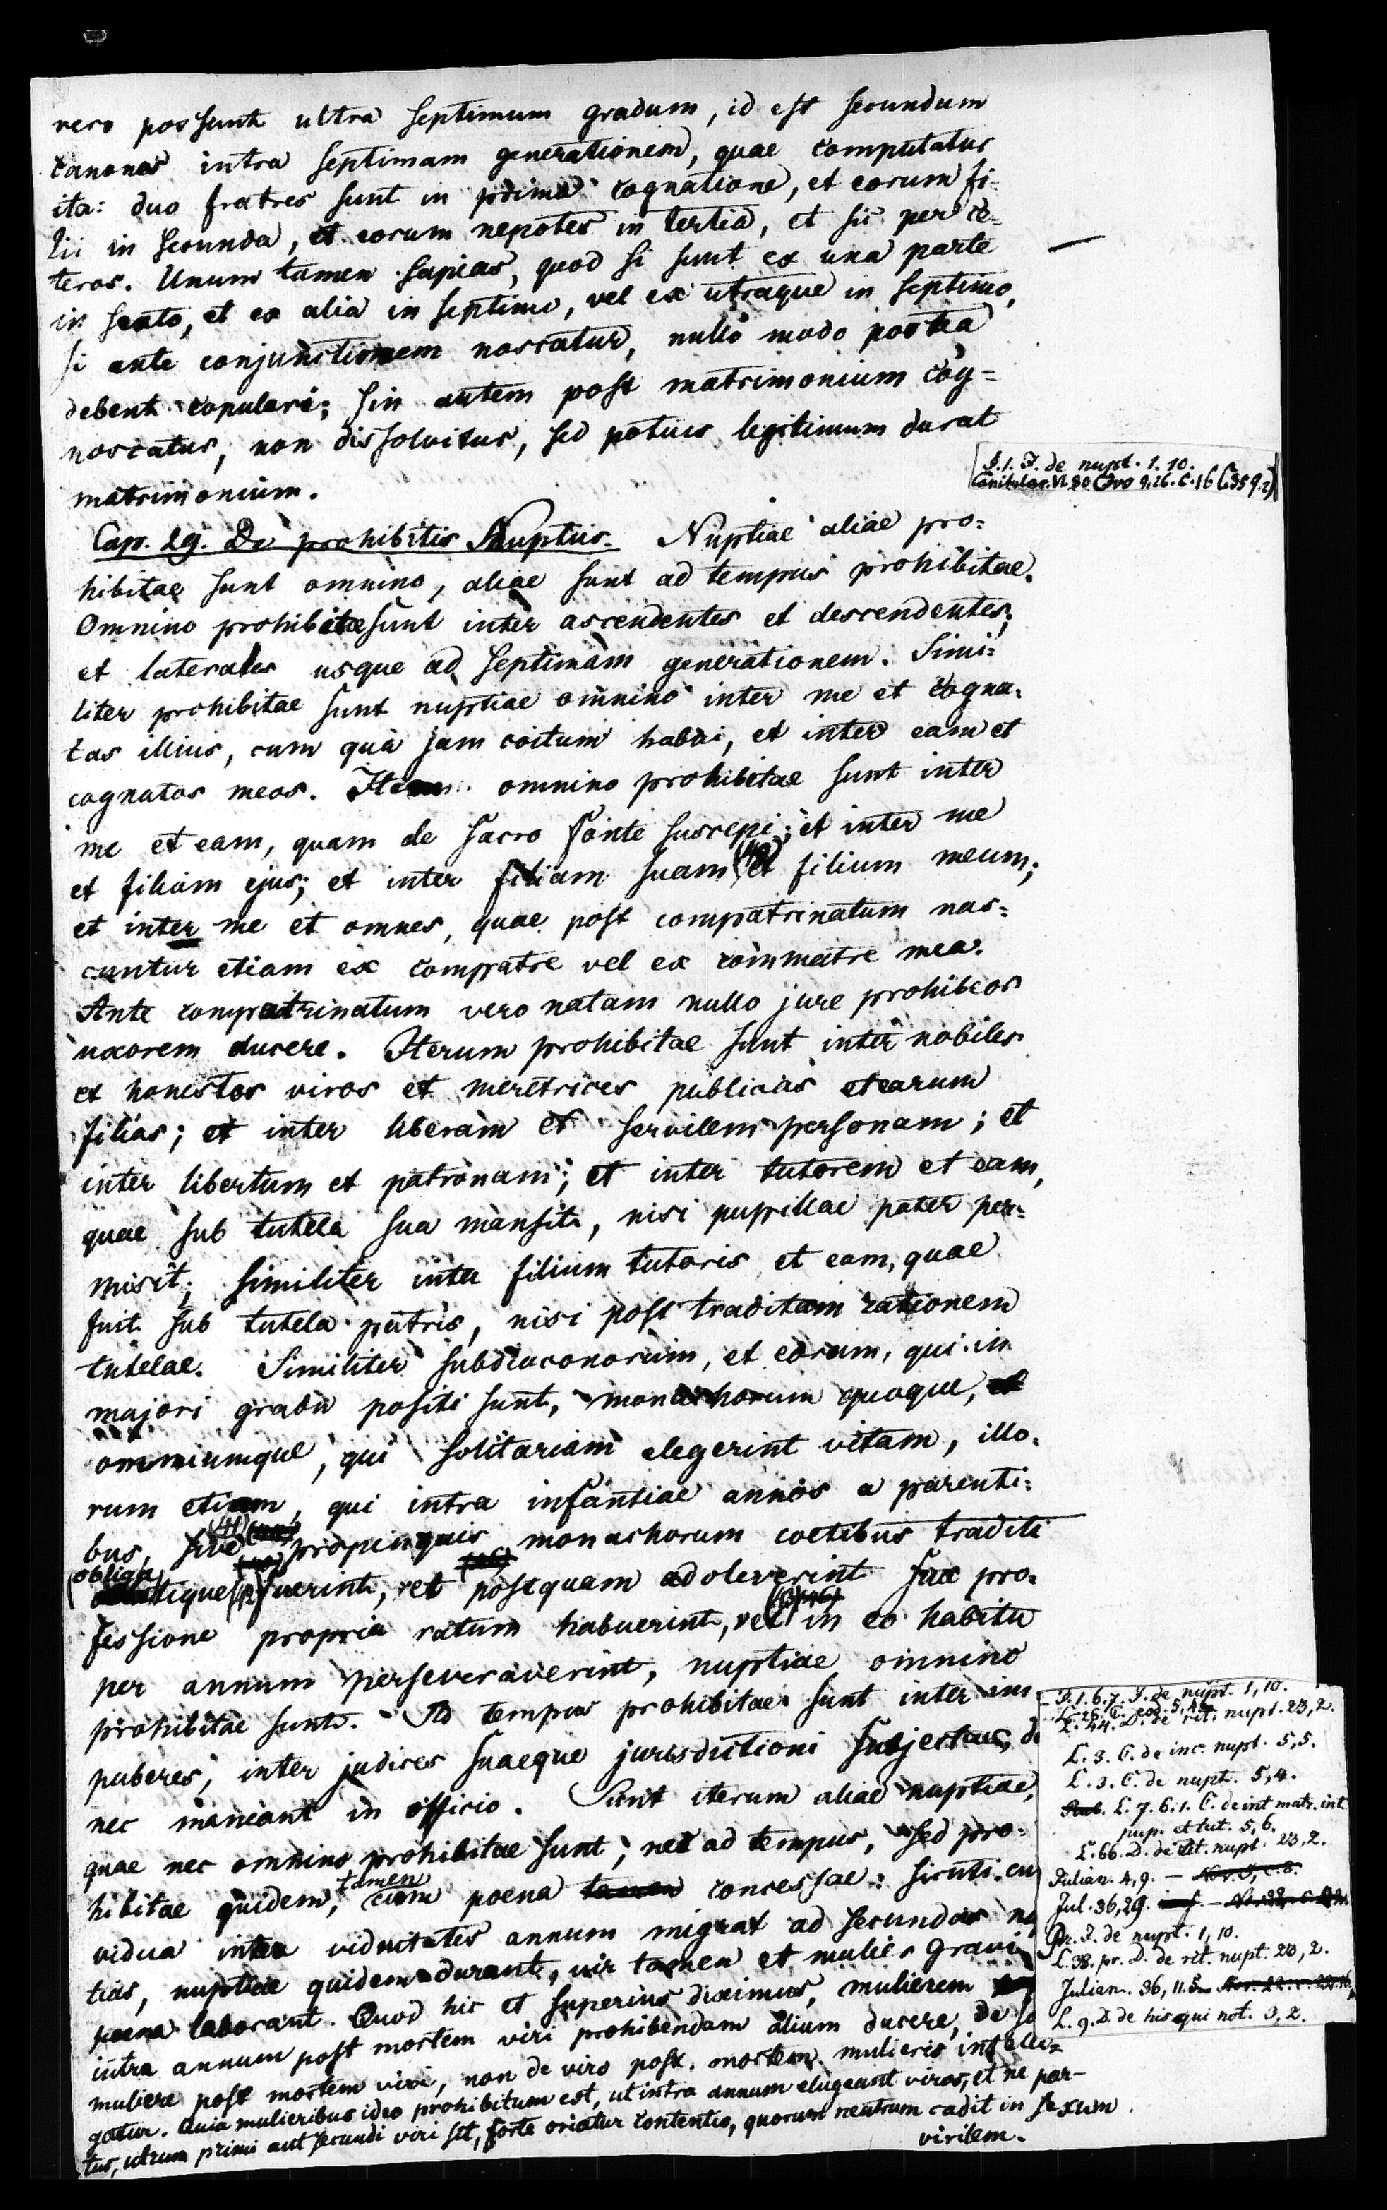 vero possunt ultra septimum gradum, id est secundum
canones intra septimam generationem, quae computatur
ita: duo fratres sunt in prima cognatione, et eorum fi-
lii in secunda, et eorum nepotes in tertia, et sic per ce-
teros. Unum tamen sapias, quod si sunt ex una parte
in sexto, et ex alia in septimo, vel ex utraque in septimo,
si ante conjunctionem noscatur, nullo modo postea
debent copulari; sin autem post matrimonium cog-
noscatur, non dissolvitur, sed potius legitimum durat
matrimonium.
§.1. I. de nupt. 1. 10.
Capitular. VI. 80 Ivo 9,26. C. 16 (359.2)
Cap. 29. De prohibitis Nuptiis. Nuptiae aliae pro-
hibitae sunt omnino, aliae sunt ad tempus prohibitae.
Omnino prohibitae sunt inter ascendentes et descendentes,
et laterales usque ad septimam generationem. Simi-
liter prohibitae sunt nuptiae omnino inter me et cogna-
tas illius, cum qua jam coitum habui, et inter eam et
cognatos meos. Item omnino prohibitae sunt inter
me et eam, quam de sacro fonte suscepi; et inter me
et filiam ejus; et inter filiam suam et filium meum;
et inter me et omnes, quae post compatrinatum nas-
cuntur etiam ex compatre vel ex commatre mea.
Ante compatrinatum vero natam nullo jure prohibeor
uxorem ducere. Iterum prohibitae sunt inter nobiles
et honestos viros et meretrices publicas et earum
filias; et inter liberam et servilem personam; et
inter libertum et patronam; et inter tutorem et eam,
quae sub tutela sua mansit, nisi pupillae pater per-
misit; similiter inter filium tutoris et eam, quae
fuit sub tutela patris, nisi post traditam rationem
tutelae. Similiter subdiaconorum, et eorum, qui in
majori gradu positi sunt, monachorum quoque, et
omniumque, qui solitariam elegerint vitam, illo-
rum etiam, qui intra infantiae annos a parenti-
bus, sive propinquis monachorum coetibus traditi
(oblatique fuerint, vel postquam adoleverint sua pro-
fessione propria ratum habuerint, vel in eo habitu
per annum perseveraverint, nuptiae omnino
prohibitae sunt. Ad tempus prohibitae sunt inter im-
puberes, inter judices suaeque jurisdictioni subjectas, do
nec maneant in officio. Sunt iterum aliae nuptiae,
quae nec omnino prohibitae sunt, nec ad tempus, sed pro-
hibitae quidem, tamen cum poena tamen concessae: sicuti cu
vidua intra viduitatis annum migrat ad secundas nu
tias, nuptiae quidem durant, vir tamen et mulier gravi
poena laborant. Quod hic et superius diximus, mulierem
intra annum post mortem viri prohibendam alium ducere, de so
muliere post mortem viri, non de viro post mortem mulieris intelli-
gatur. Quia mulieribus ideo prohibitum est, ut intra annum elugeant viros, et ne par-
tus, utrum primi aut secundi viri sit, forte oriatur contentio, quorum neutrum cadit in sexum
virilem.
§. 1. 6. 7. I. de nupt. 1, 10.
L. 44. D. de rit. nupt. 23, 2.
L. 3. C. de inc. nupt. 5,5.
L. 3. C. de nupt. 5,4.
L. 7. 6. 1. C. de int matr. int
pup. et tut. 5, 6.
L. 66. D. de rit. nupt. 23, 2.
Julian. 4, 9. — Nov. 5, c. 8.
Jul. 36, 29.
Pr. I. de nupt. 1, 10.
L. 38. pr. D. de rit. nupt. 23, 2.
Julian. 36, 11.
L. 9. D. de his qui not. 3, 2.